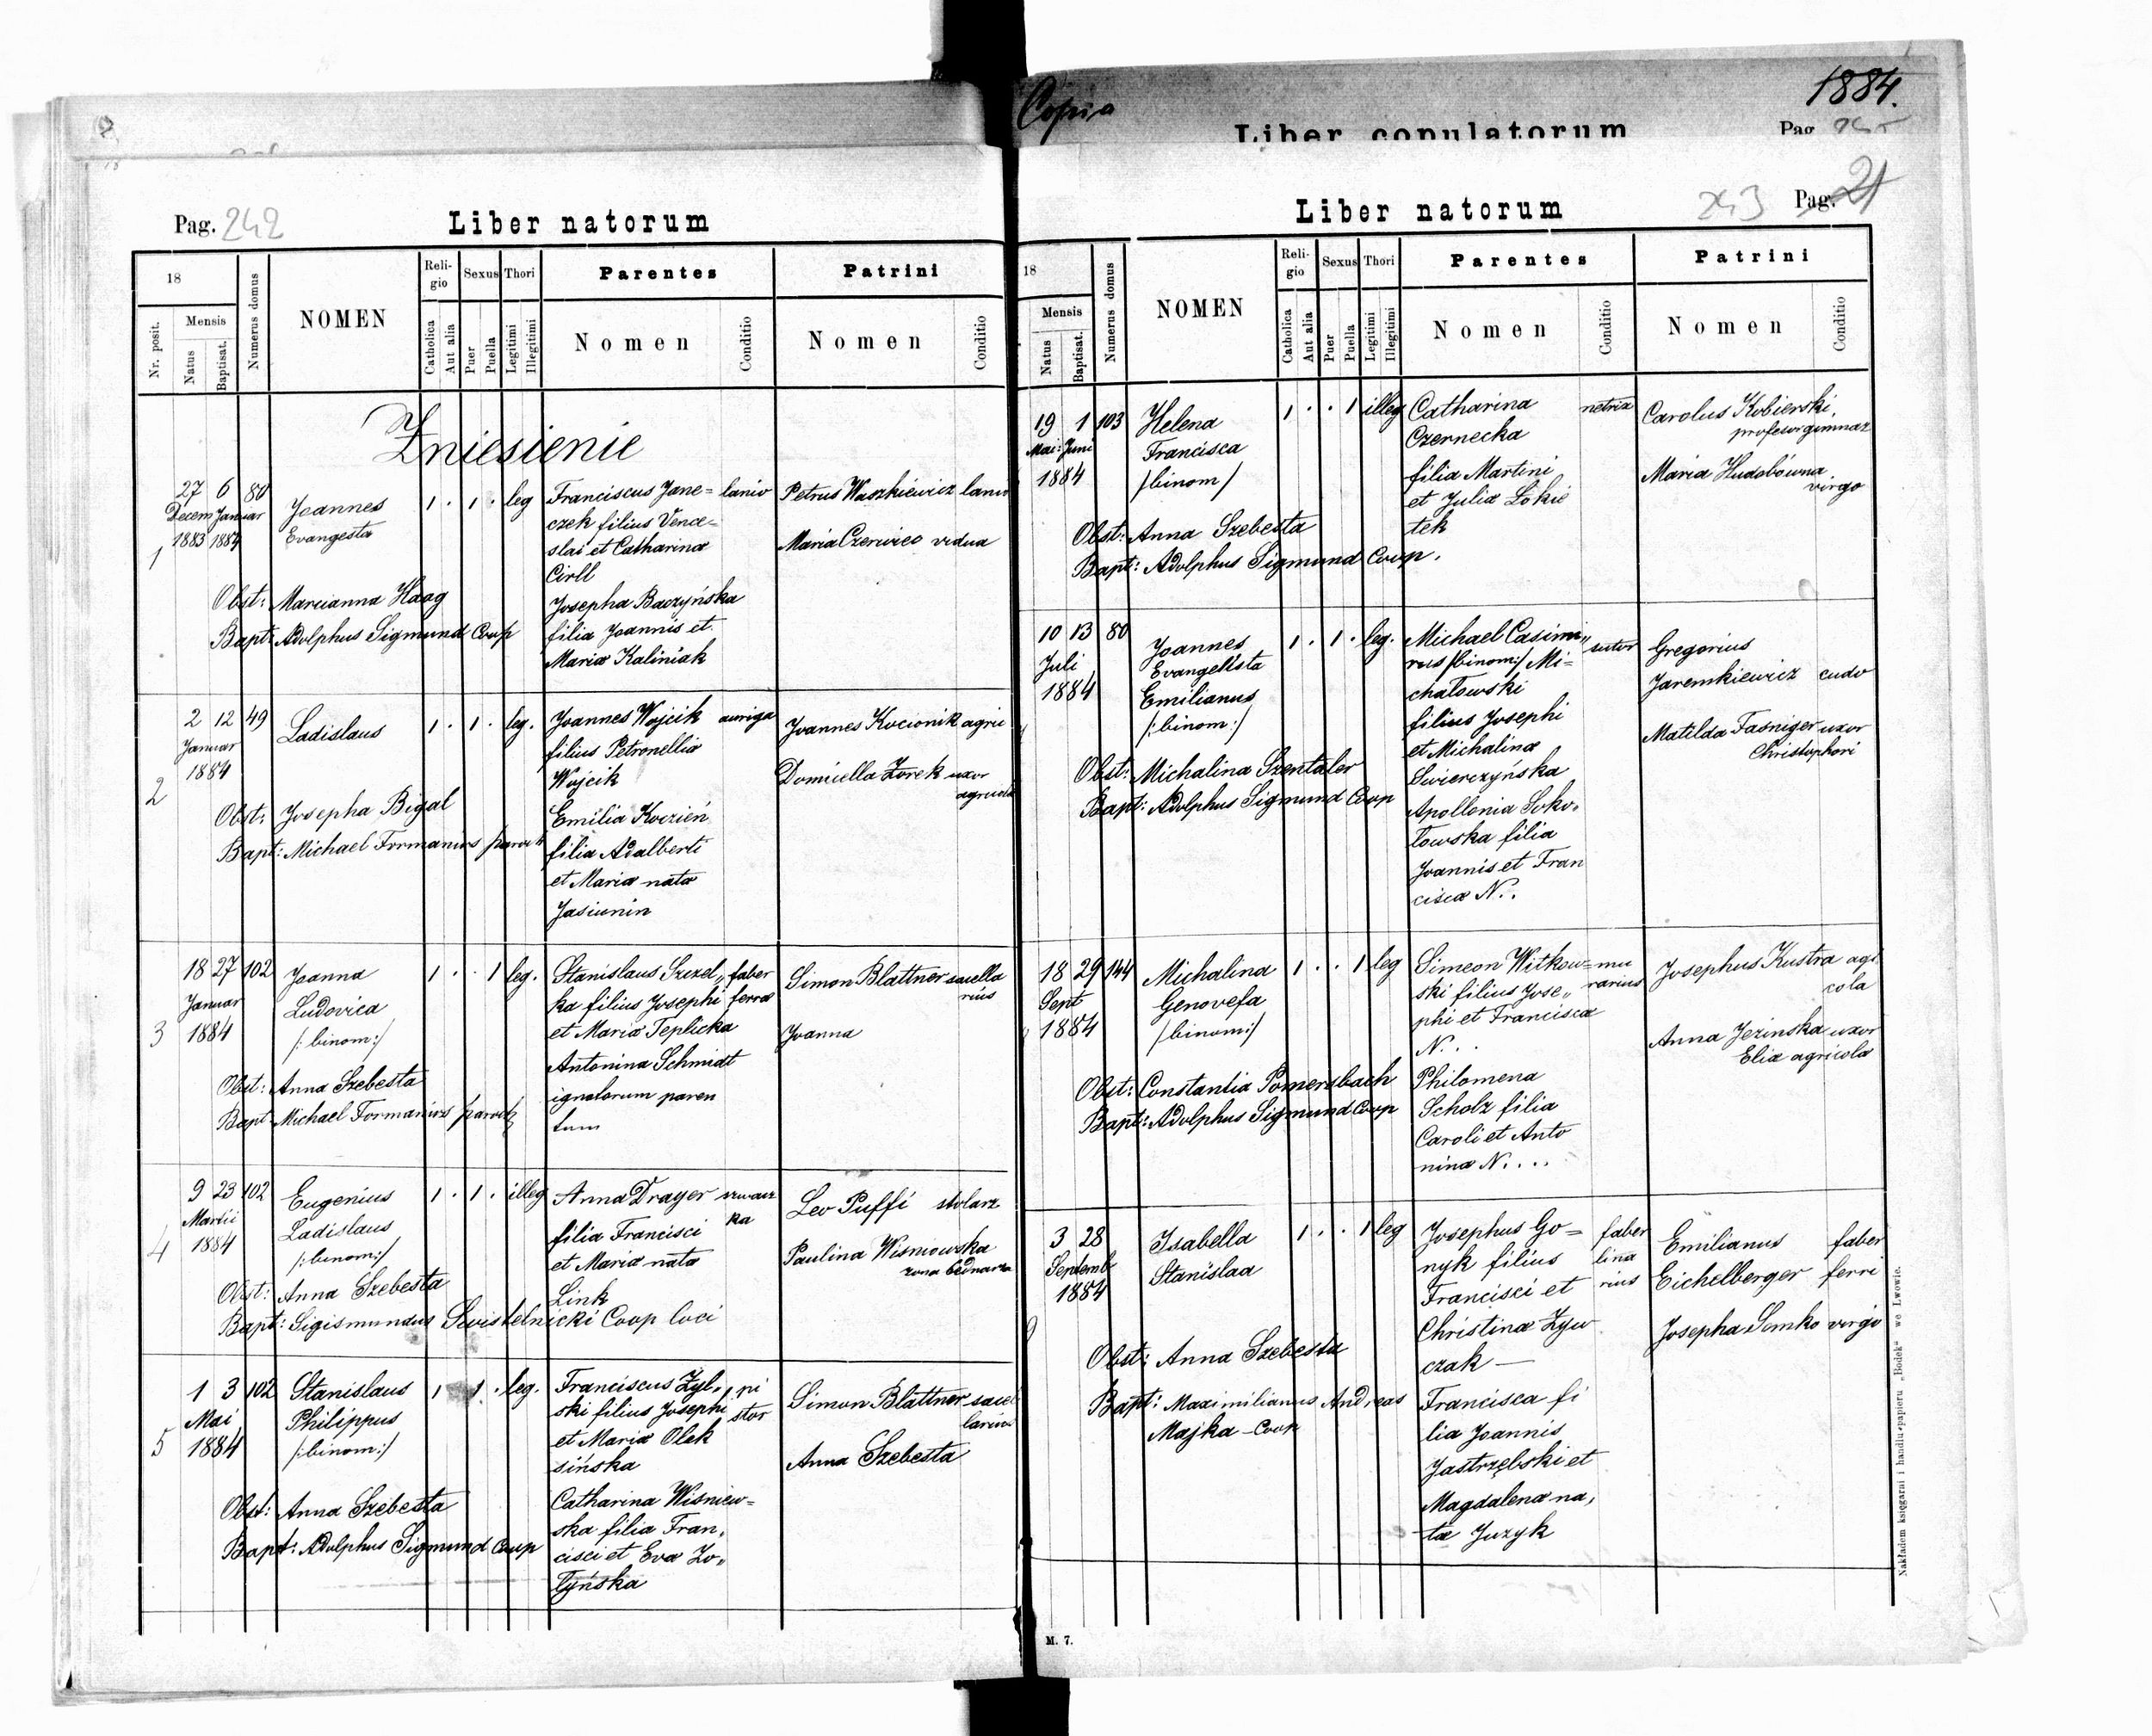 Copia
1884.
Liber copulatorum
Pag.
Pag. 242
Liber natorum
18
Nr. posit.
Mensis
Natus
Baptisat.
Numerus domus
NOMEN
Reli-
gio
Catholica
Aut alia
Sexus
Puer
Puella
Thori
Legitimi
Illegitimi
Parentes
Nomen
Conditio
Patrini
Nomen
Conditio
Zniesienie
27 6 80 Joannes 1 . 1 . leg Franciscus Jane= lanio Petrus Waszkiewicz lanio
Decem Januar Evangesta czek filius Vence=
1883 1884 slai et Catharina Maria Czerwiec vidua
1
Cirll
Obst: Marianna Haag Josepha Baczyńska
Bapt: Adolphus Sigmund Coop filia Joannis et
Maria Kaliniak
2 12 49 Ladislaus 1 . 1 . leg. Joannes Wojcik auriga Joannes Kocionik agri
Januar filius Petronellia
1884 Wojcik Domicella Zorek uxor
2 agricola
Obst: Josepha Bigal Emilia Kozień
Bapt: Michael Formanios paroch filia Adalberti
et Maria nata
Jasiunin
18 27 102 Joanna 1 . . 1 leg. Stanislaus Szzel„ faber Simon Blattner saella
Januar Ludovica ka filius Josephi ferra rius
1884 /:binom:/ et Maria Teplicka Joanna
3 Antonina Schmidt
Obst: Anna Szebesta ignotorum paren
Bapt: Michael Formanios paroch tum
9 23 102 Eugenius 1 . 1 . illeg Anna Drayer szwacz Leo Puffi stolarz
Martii Ladislaus filia Francisci ka
1884 /:binom:/ et Maria nata Paulina Wisniowska
4 żona bednarza
Obst: Anna Szebesta Link
Bapt: Sigismundus Swistelnicki Coop loci
1 3 102 Stanislaus 1 1 . leg. Franciscus Żyl„ pi Simon Blattner sacel
Mai Philippus ski filius Josephi stor larius
1884 /:binom:/ et Maria Olek Anna Szebesta
5 sińska
Obst: Anna Szebesta Catharina Wisniew=
Bapt: Adolphus Sigmund Coop ska filia Fran„
cisci et Eva Zo„
łyńska
243 Pag. 21
Liber natorum
18
Mensis
Natus
Baptisat.
Numerus domus
NOMEN
Reli-
gio
Catholica
Aut alia
Sexus
Puer
Puella
Thori
Legitimi
Illegitimi
Parentes
Nomen
Conditio
Patrini
Nomen
Conditio
19 1 103 Helena 1 . . 1 illeg Catharina netrix Carolus Kobierski,
Mai: Juni Francisca Czernecka profesor gimnaz
1884 /binom/ filia Martini Maria Hudobówna
et Julia Łokie virgo
Obst: Anna Szebesta tek
Bapt: Adolphus Sigmund Coop.
10 13 80 Joannes 1 . 1 . leg. Michael Casimi„ sutor Gregorius
Juli Evangelista rus /binom:/ Mi= Jaremkiewicz cudo
1884 Emilianus chałowski
/:binom:/ filius Josephi Matilda Fasniger uxor
et Michalina Christophori
Obst: Michalina Szentaler Swierczyńska
Bapt: Adolphus Sigmund Coop Apollonia Soko„
łowska filia
Joannis et Fran
cisca N..
18 29 144 Michalina 1 . . 1 leg Simeon Witkow= mu Josephus Kustra agri
Sept Genovefa ski filius Jose„ rarius cola
1884 /binom:/ phi et Francisca
N... Anna Jezinska uxor
Elia agricola
Obst: Constantia Pomersbach Philomena
Bapt: Adolphus Sigmund Coop Scholz filia
Caroli et Anto
nina N....
3 28 Isabella 1 . . 1 leg Josephus Go= faber Emilianus faber
Septemb Stanislaa nyk filius lina Eichelberger ferri
1884 Francisci et rius
Christina Zyw Josepha Somko virgo
Obst: Anna Szebesta czak —
Bapt: Maximilianus Andreas Francisca fi
Majka - Coop lia Joannis
Jastrzębski et
Magdalena na„
ta Juzyk
Nakładem księgarni i handlu papieru „Bodek" we Lwowie.
M. 7.